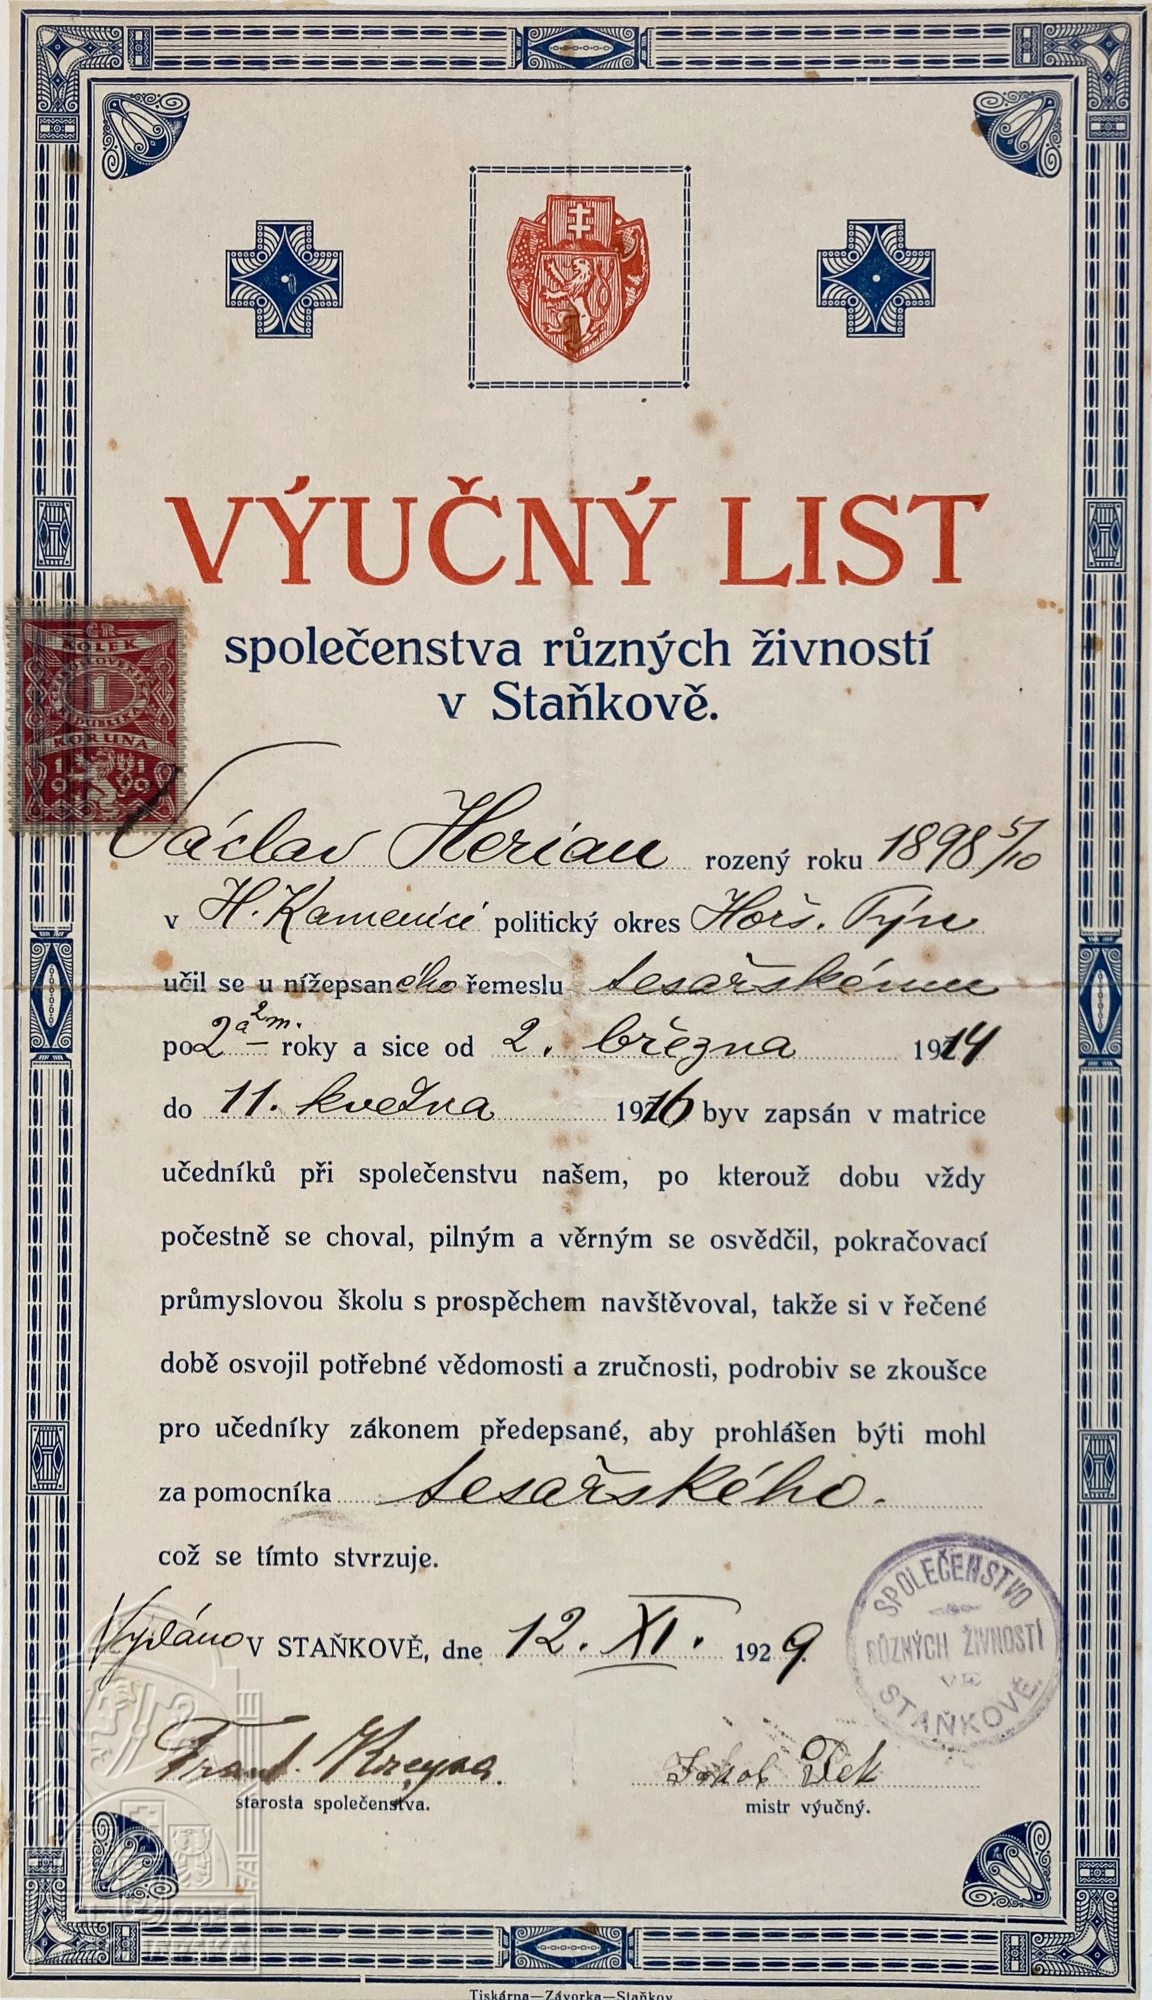 VÝUČNÝ LIST
společenstva různých živností
v Staňkově.
ČR
KOLEK
1
KORUNA
1919
Václav Herian rozený roku 1898 5/10
v H. Kamenici politický okres Horš. Týn
učil se u nížepsaného řemeslu tesařskému
po 2 a 2 m. roky a sice od 2. března 1914
do 11. května 1916 byv zapsán v matrice
učedníků při společenstvu našem, po kterouž dobu vždy
počestně se choval, pilným a věrným se osvědčil, pokračovací
průmyslovou školu s prospěchem navštěvoval, takže si v řečené
době osvojil potřebné vědomosti a zručnosti, podrobiv se zkoušce
pro učedníky zákonem předepsané, aby prohlášen býti mohl
za pomocníka tesařského.
což se tímto stvrzuje.
Vydáno V STAŇKOVĚ, dne 12. XI. 1929.
SPOLEČENSTVO
RŮZNÝCH ŽIVNOSTÍ
VE
STAŇKOVĚ
Frant.
Jakob
starosta společenstva.
mistr výučný.
Tiskárna—Závorka—Staňkov